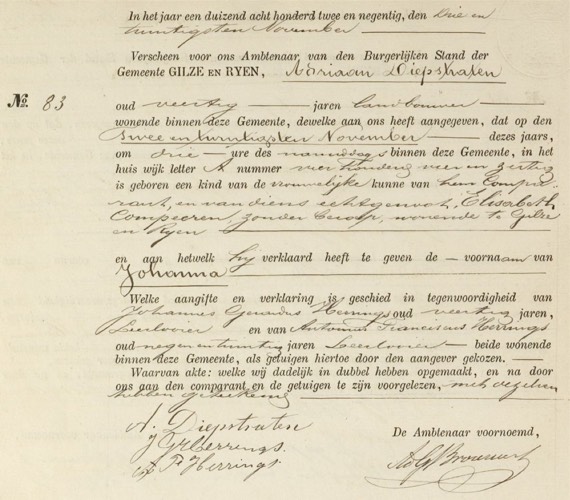 In het jaar een duizend acht honderd twee en negentig, den drie en
twintigsten November
Verscheen voor ons Ambtenaar van den Burgerlijken Stand der
Gemeente GILZE EN RYEN, Adriaan Diepstraten
No. 83
oud veertig jaren landbouwer
wonende binnen deze Gemeente, dewelke aan ons heeft aangegeven, dat op den
twee en twintigsten November dezes jaars,
om drie ure des namiddags binnen deze Gemeente, in het
huis wijk letter A nummer vier honderd vier en zestig
is geboren een kind van de vrouwelijke kunne van hem Compa-
rant, en van diens echtgenoot, Elisabeth
Compeeren, zonder beroep, wonende te Gilze
en Ryen
en aan hetwelk hij verklaard heeft te geven de voornaam van
Johanna
Welke aangifte en verklaring is geschied in tegenwoordigheid van
Johannes Gerardus Herrings oud veertig jaren,
Leerlooier en van Antonius Franciscus Herrings
oud negen en twintig jaren Leerlooier beide wonende
binnen deze Gemeente, als getuigen hiertoe door den aangever gekozen.
Waarvan akte: welke wij dadelijk in dubbel hebben opgemaakt, en na door
ons aan den comparant en de getuigen te zijn voorgelezen, met dezelven
hebben geteekend
A. Diepstraten
J G Herrings.
A F Herrings.
De Ambtenaar voornoemd,